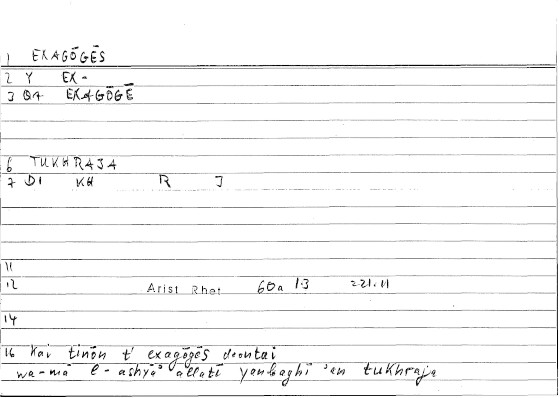 1 EXAGŌGĒS
2 Y EX-
3 Q4 EXAGŌGĒ
6 TUKHRAJA
7 D1 KH R J
11
12 Arist Rhet 60a 13 =21.11
14
16 kai tinōn t' exagōgēs deontai
wa-mā l-ashyā' allatī yanbaghī 'an tukhraja